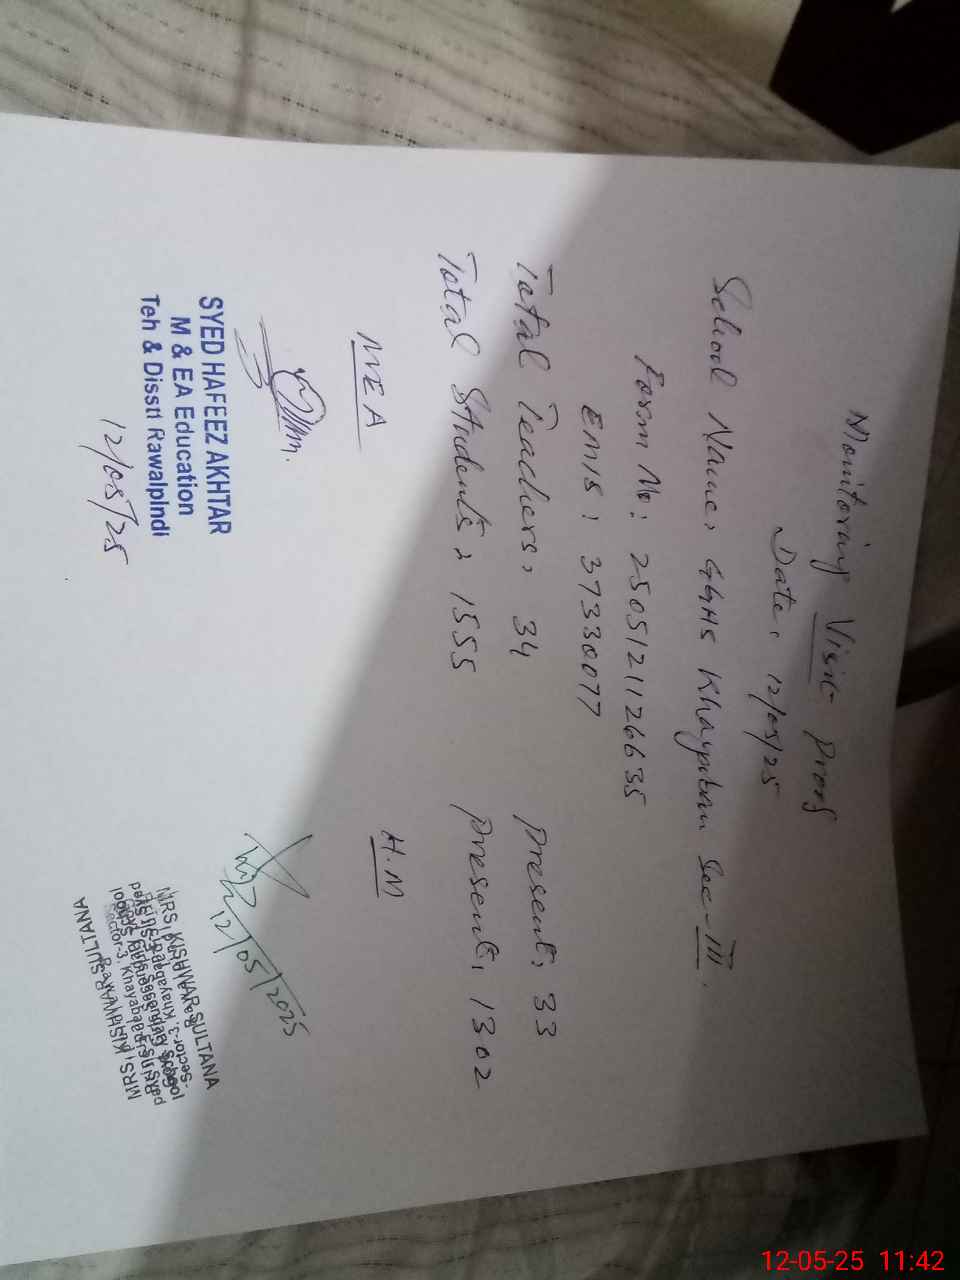 Monitoring Visit Proof
Date: 12/05/25
School Name: GGHS Khayaban Sec-III.
Form No: 2505121126635
EMIS: 37330077
Total Teachers: 34 Present: 33
Total Students: 1555 Present: 1302
MEA H.M
12/05/2025
SYED HAFEEZ AKHTAR
M & EA Education
Teh & Disstt Rawalpindi
12/05/25
MRS KISHWAR SULTANA
12-05-25 11:42